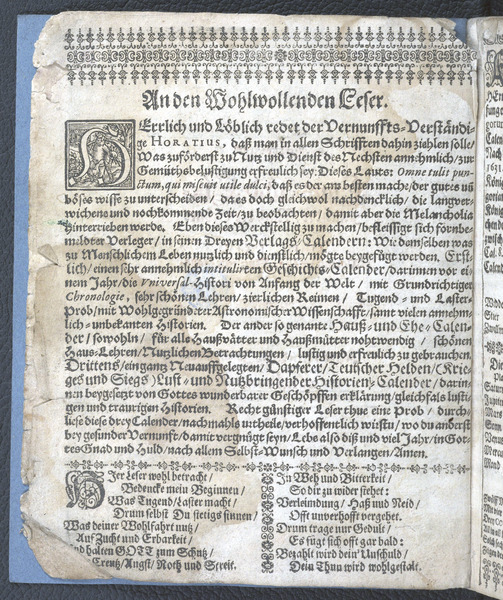 An den Wohlwollenden Leser.
HErrlich und Löblich redet der Vernunffts-Verständi-
ge HORATIUS, daß man in allen Schrifften dahin ziehlen solle/
Was zuförderst zu Nutz und Dienst des Nechsten annehmlich/ zur
Gemüthsbelustigung erfreulich sey: Dieses Lauts: Omne tulit pun-
ctum, qui miscuit utile dulci, daß es der am besten mach/ der gutes uñ
böses wisse zu unterscheiden/ da es doch gleichwol nachdencklich/ die langver-
wichene und nochkommende Zeit/ zu beobachten/ damit aber die Melancholia
hinterriehen werde. Eben dieses Werckstellig zu machen/ befleissige sich fornbe-
meldter Verleger/ in seinen Dreyen Verlags-Calendern: Wie demselben was
zu Menschlichem Leben nutzlich und dienstlich/ mögte beygefüget werden. Erst-
lich/ einen sehr annehmlich intitulirten Geschichts-Calender/ darinnen vor ei-
nem Jahr/ die Universal-Histori von Anfang der Welt/ mit Grundrichtiger
Chronologie, sehr schönen Lehren/ zierlichen Reimen/ Tugend- und Laster-
Prob/ mit Wohlgegründter Astronomischer Wissenschafft/ samt vielen annehm-
lich-unbekanten Historien. Der ander so genante Hauß- und Ehe-Calen-
der/ sowohln/ für alle Haußvätter und Haußmütter nohtwendig/ schönen
Haus-Lehren/ Nutzlichen Betrachtungen/ lustig und erfreulich zu gebrauchen.
Drittens/ ein gantz Neuauffgelegten/ Dapferer/ Teutscher Helden/ Krie-
ges und Siegs/ Lust- und Nutzbringender Historien-Calender/ darin-
nen beygesetzt von Gottes wunderbarer Geschöpffen erklärung/ gleichfals lusti-
gen und traurigen Historien. Recht günstiger Leser thue eine Prob/ durch-
liese diese drey Calender/ nachmahls urtheile/ verhoffentlich wirstu/ wo du anderst
bey gesunder Vernunft/ damit vergnügt seyn/ Lebe also diß und viel Jahr/ in Got-
tes Gnad und Huld/ nach allem Selbst-Wunsch und Verlangen/ Amen.
HIer Leser wohl betracht/
Bedencke mein Beginnen/
Was Tugend/ Laster macht/
Drum selbst Du stetigs sinnen/
Was deiner Wohlfahrt nutz/
Auf Zucht und Erbarkeit/
Und halten GOTT zum Schutz/
Creutz/ Angst/ Noth und Streit.
In Weh und Bitterkeit/
So dir zu wider stehet:
Verleimdung/ Haß und Neid/
Offt unverhofft vergehet.
Drum trage nur Gedult/
Es fügt sich offt gar bald:
Bezahlt wird dein Unschuld/
Dein Thun wird wohlgestalt.